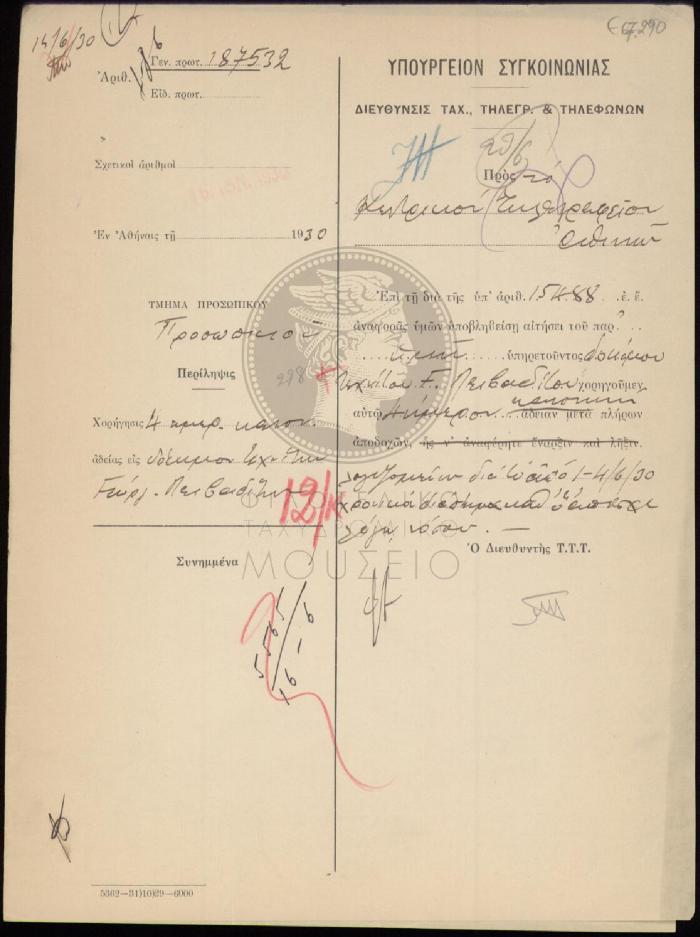 14/6/30
Є67.290
Ἀριθ.
Γεν. πρωτ. 187532
Εἰδ. πρωτ.
Σχετικοὶ ἀριθμοὶ
16 ΙΟΥΝ. 1930
Ἐν Ἀθήναις τῇ 1930
ΤΜΗΜΑ ΠΡΟΣΩΠΙΚΟΥ
Προσωπικὸν
Περίληψις
Χορήγησις 4 ημερ. κανον.
ἀδείας εἰς δόκιμον τεχνίτην
Γεώργ. Λειβαδίτην
12/Κ
Συνημμένα
5565
16-6
5362—31)10)29—6000
ΥΠΟΥΡΓΕΙΟΝ ΣΥΓΚΟΙΝΩΝΙΑΣ
ΔΙΕΥΘΥΝΣΙΣ ΤΑΧ., ΤΗΛΕΓΡ. & ΤΗΛΕΦΩΝΩΝ
29/6
Πρὸς τὸ
Κεντρικὸν Τηλεγραφεῖον
Ἀθηνῶν
Ἐπὶ τῇ διὰ τῆς ὑπ' ἀριθ. 15488 ἐ. ἔ.
ἀναφορᾶς ὑμῶν ὑποβληθείσῃ αἰτήσει τοῦ παρ'
ὑμῖν ὑπηρετοῦντος δοκίμου
τεχνίτου Γ. Λειβαδίτου χορηγοῦμεν
αὐτῷ 4ήμερον κανονικὴν ἄδειαν μετὰ πλήρων
ἀποδοχῶν, ἧς ν' ἀναφέρητε ἔναρξιν καὶ λῆξιν.
λογιζομένην διὰ τὸ ἀπὸ 1-4/6/30
χρονικὸν διάστημα καθ' ὃ ἀπέσχε
λόγῳ νόσου. —
Ὁ Διευθυντὴς Τ.Τ.Τ.
ΤΑΧΥΔΡΟΜΙΚΟ
ΜΟΥΣΕΙΟ